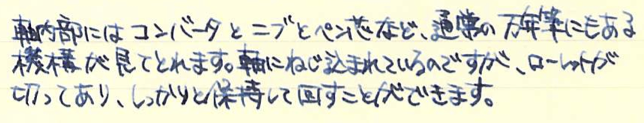 軸内部にはコンバータとニブとペン芯など、通常の万年筆にもある
機構が見てとれます。軸にねじ込まれているのですが、ローレットが
切ってあり、しっかりと保持して回すことができます。